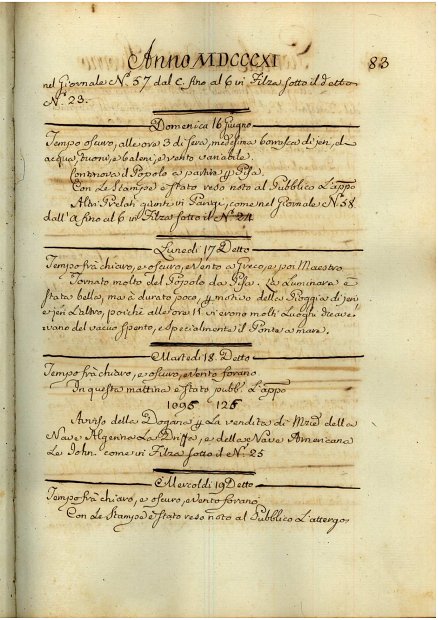 Anno MDCCCXI
83
nel Giornale N.º 57 dal C. fino al 6 in Filza sotto il detto
N.º 23.
Domenica 16 Giugno
Tempo oscuro, alle ore 3 di sera, medesima borrasca di jeri, d
acqua, tuoni, e baleni, e vento variabile.
Continova il Popolo a partir p Pisa.
Con Le Stampe è stato reso noto al Pubblico L'appo
Altri Prelati giunti in Parigi, come nel Giornale N.º 58
dall' A fino al 6 in Filza sotto il N.º 24
Lunedi 17 Detto
Tempo frà chiaro, e oscuro, e Vento a Greco, e poi Maestro
Tornato molto del Popolo da Pisa. La Luminara è
stata bella, ma à durato poco, p motivo della Pioggia di jeri
e jeri L'altro, poichè alle ore 11 vi erono molti Luoghi che avé-
ivano del vacuo spento, e specialmente il Ponte a mare.
Martedi 18. Detto
Tempo frà chiaro, e oscuro, e vento forano
In questa mattina è stato pubb. L'appo
1095 125
Avviso della Dogana p La vendita di Mzie della
Nave Algerina La e della Nave Americana
Le John. come in Filza sotto il N. 25
Mercoldi 19 Detto
Tempo frà chiaro, e oscuro, e Vento forano
Con Le Stampe è stato reso noto al Pubblico L'attergo